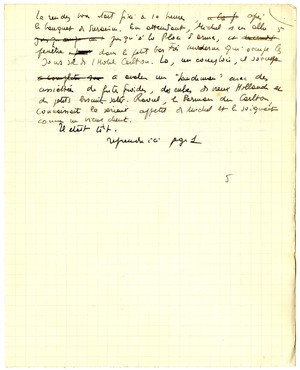 Le rendez vous était fixé à 10 heures, après
le banquet de Serrurier. En attendant, Michel s'en alla
jusqu'à la Place d'Armes, et
pénétra dans le petit bar très moderne qui occupe le
sous sol de l'Hotel Carlton. Là, au comptoir, il
à avaler un "sandwich" avec des
assiettées de frite froide, des cubes de vieux Hollande et
de petits biscuits salés. Raoul, le barman du Carlton,
connaissait le vorace appétit de Michel et le soignait
comme un vieux client.
Il était tôt.
reprendre ici page 1
5